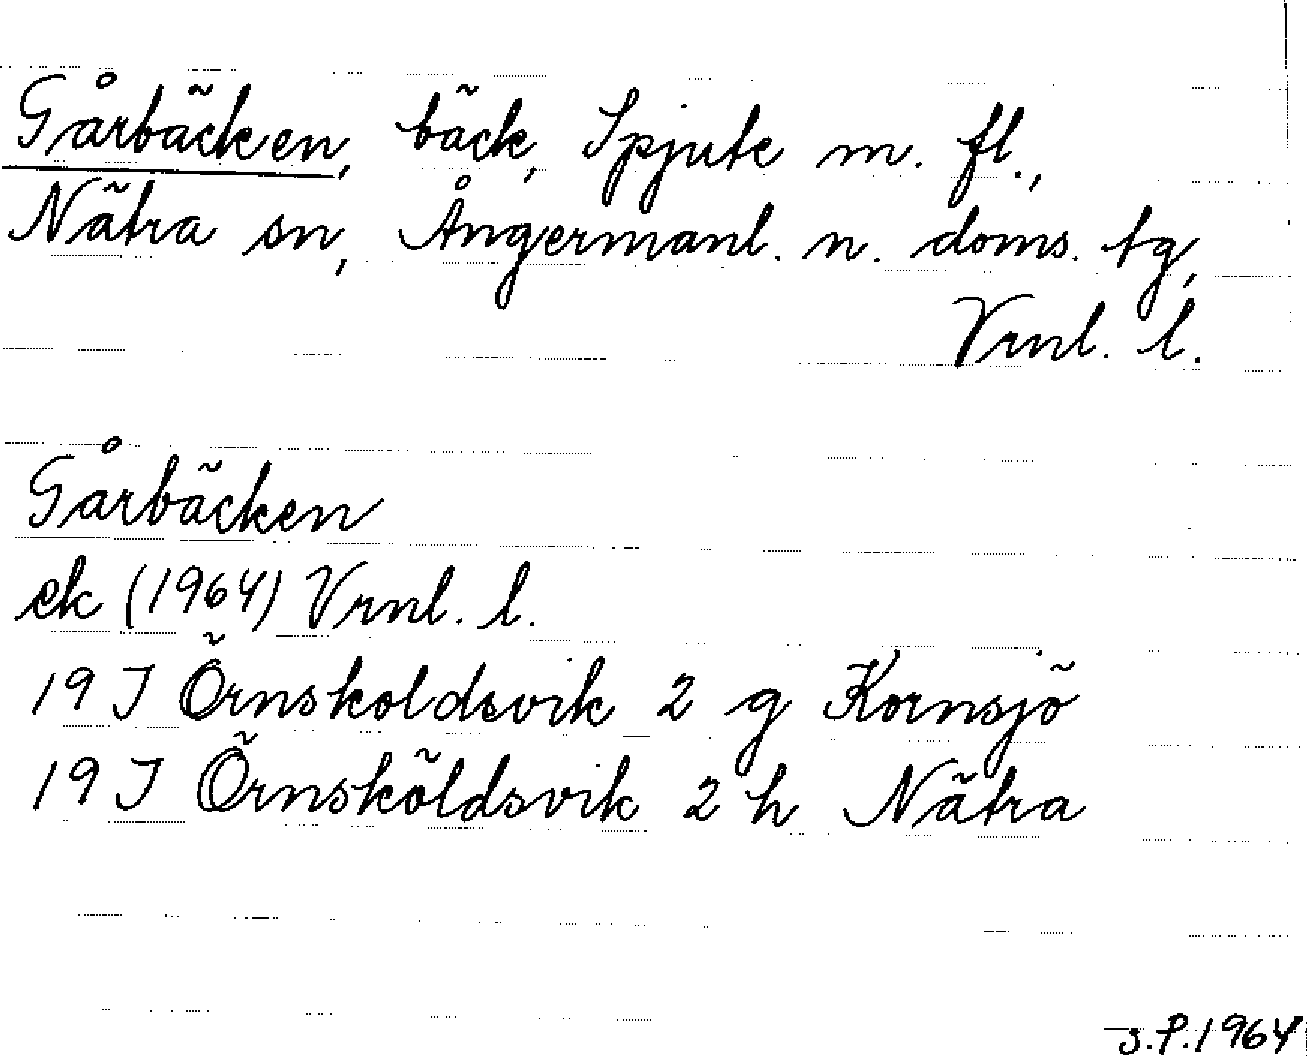 Gårbäcken, bäck, Spjute m. fl.,
Nätra sn, Ångermanl. n. doms. tg,
Vrnl. l.
Gårbäcken
ek (1964) Vrnl. l.
19 J Örnskoldsvik 2 g Kornsjö
19 J Örnsköldsvik 2 h Nätra
J.P.1964